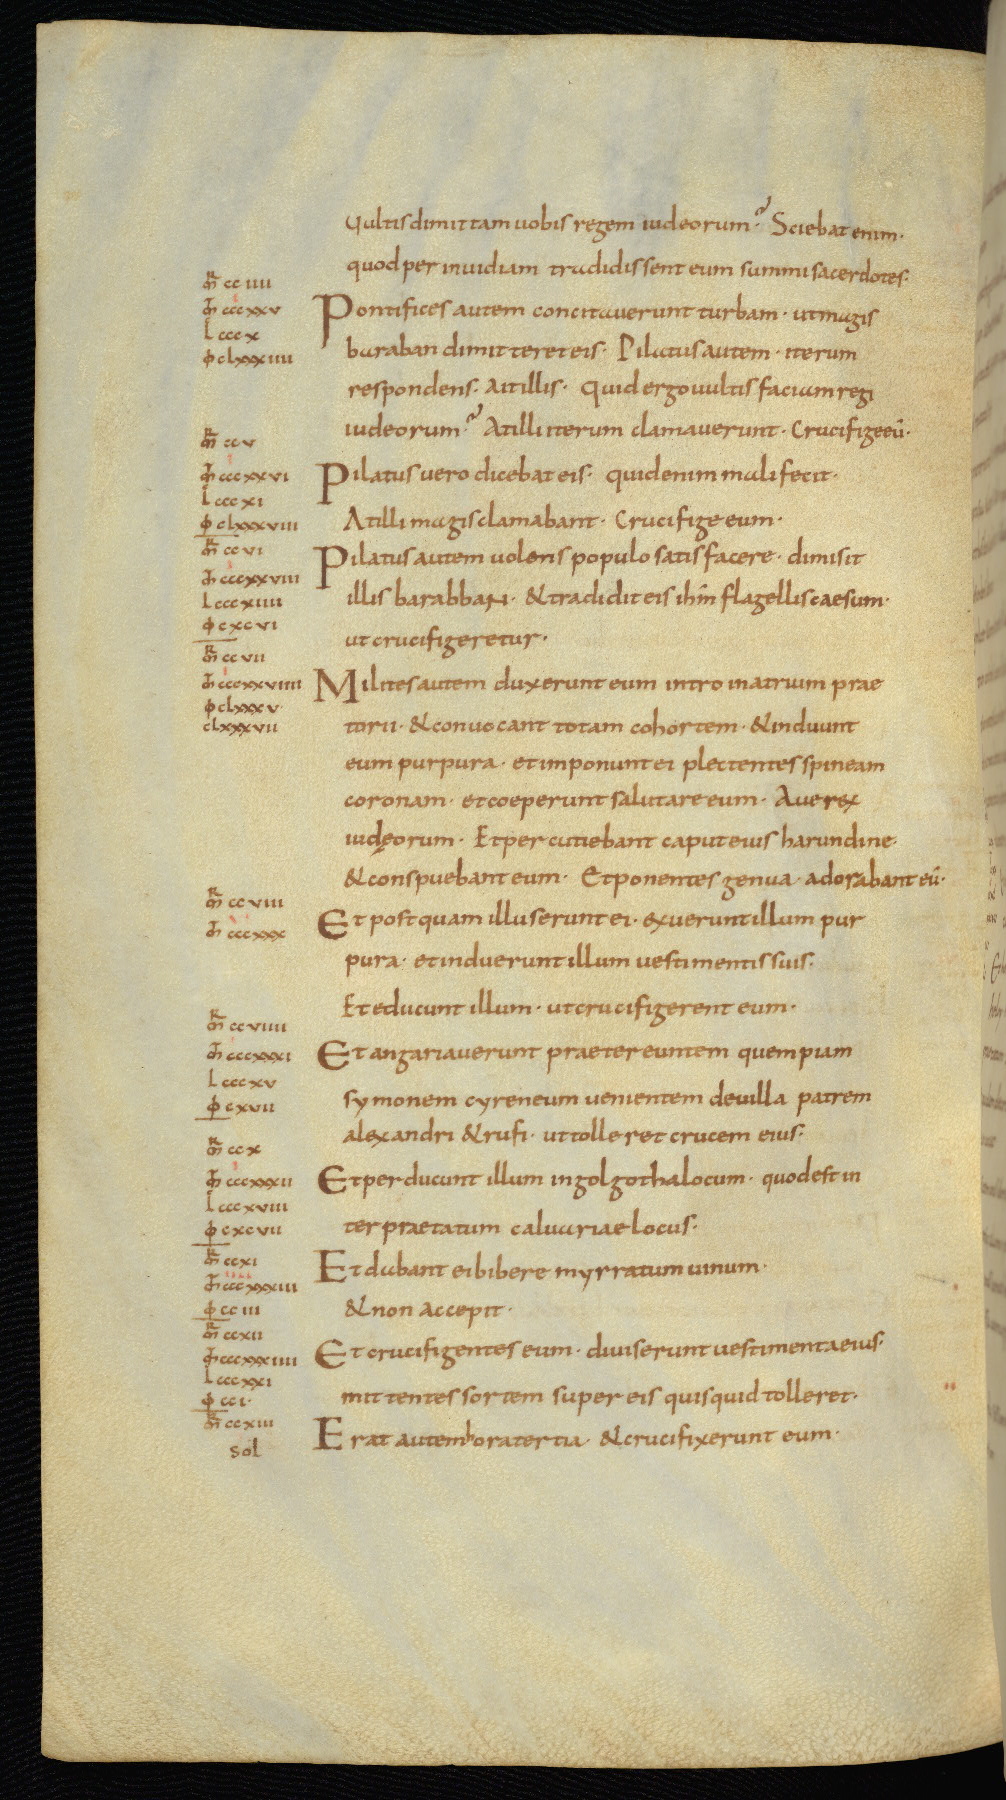 Uultis dimittam uobis regem iudeorum? Sciebat enim·
quod per inuidiam tradidissent eum summi sacerdotes·
mr cc iiii
Pontifices autem concitauerunt turbam· ut magis
ih cccxxv
l cccx
baraban dimitteret eis· Pilatus autem· iterum
φ clxxxiiii
respondens· ait illis· Quid ergo uultis faciam regi
iudeorum? At illi iterum clamauerunt· Crucifige eū·
mr ccv
Pilatus uero dicebat eis· quid enim mali fecit·
ih cccxxvi
l cccxi
At illi magis clamabant· Crucifige eum·
φ clxxxviii
mr ccvi
Pilatus autem uolens populo satisfacere· dimisit
ih cccxxviii
illis barabban· & tradidit eis ihm̄ flagellis caesum·
l cccxiiii
φ cxcvi
ut crucifigeretur·
mr ccvii
Milites autem duxerunt eum intro in atrium prae
ih cccxxviiii
φ clxxxv
torii· & conuocant totam cohortem· & induunt
clxxxvii
eum purpura· et imponunt ei plectentes spineam
coronam· et coeperunt salutare eum· Aue rex
iudeorum· Et percutiebant caput eius harundine·
& conspuebant eum· Et ponentes genua· adorabant eū·
mr ccviii
Et postquam illuserunt ei· exuerunt illum pur
ih cccxxx
pura· et induerunt illum uestimentis suis·
Et educunt illum· ut crucifigerent eum·
mr ccviiii
Et angariauerunt praetereuntem quempiam
ih cccxxxi
l cccxv
symonem cyreneum uenientem de uilla patrem
φ cxvii
alexandri & rufi· ut tolleret crucem eius·
mr ccx
Et perducunt illum in golgotha locum· quod est in
ih cccxxxii
l cccxviii
terpraetatum caluariae locus·
φ cxcvii
mr ccxi
Et dabant ei bibere myrratum uinum·
ih cccxxxiii
φ cciii
& non accepit·
mr ccxii
Et crucifigentes eum· diuiserunt uestimenta eius·
ih cccxxxiiii
l cccxxi
mittentes sortem super eis quis quid tolleret·
φ cci·
mr ccxiii
Erat autem hora tertia· & crucifixerunt eum·
sol